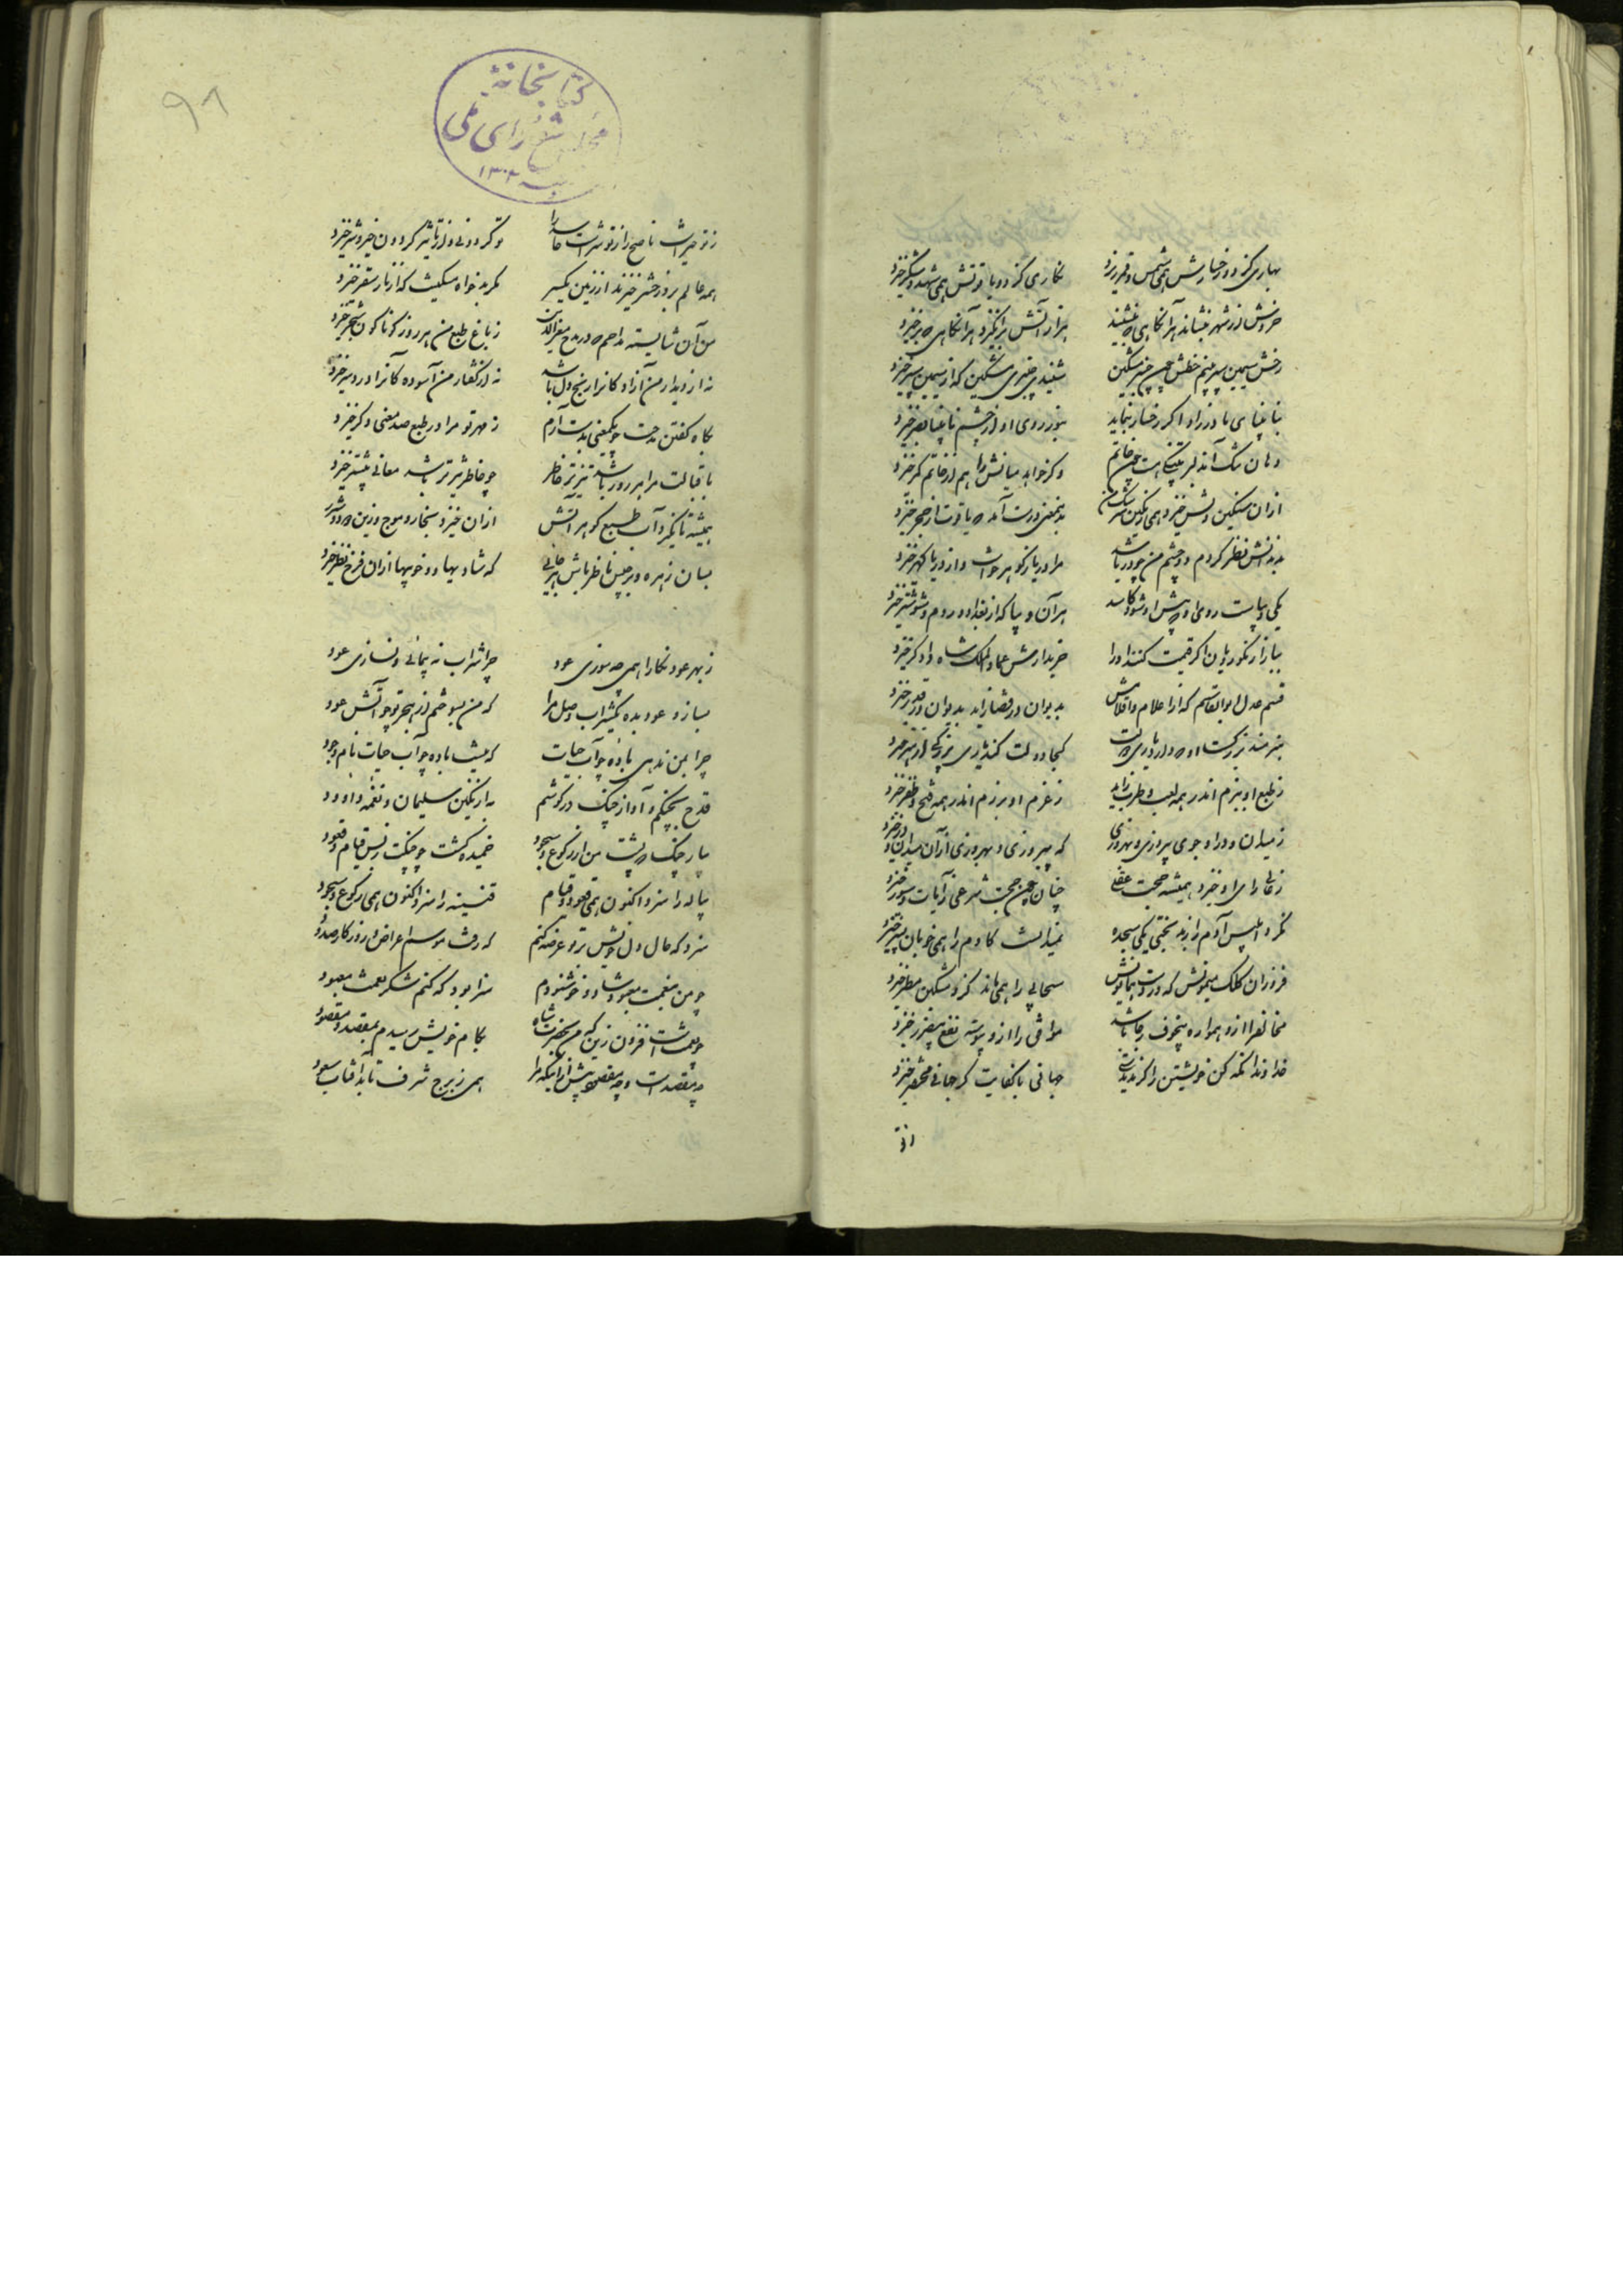 بهاری کز دو رخسارش همی شمس و قمر خیزد نگاری کز دو یاقوتش همی شهد و شکر خیزد
خروش از شهر بنشاند هر آنگاهی که بنشیند هزار آتش برانگیزد هر آنگاهی که برخیزد
رخش سیمین سپر بینم خطش چون چنبر مشکین شنیدی چنبری مشکین که از سیمین سپر خیزد
بنابینای مادرزاد اگر رخسار بنماید ز نور روی او از چشم نابینا بصر خیزد
دهان تنگ آن دلبر بتنگی هست چون خاتم وگر خواهد میانش را هم از خاتم کمر خیزد
ازان سنگین دلش خیزد همی
بدین معنی درست آمد که یاقوت از حجر خیزد
بدندانش نظر کردم دو چشم من چو دریا شد مرا دریا ز گوهر خاست و از دریا گهر خیزد
یکی دیباست روی او که پیش او شود کاسد هر آن دیبا که از بغداد و روم و شوشتر خیزد
ببازار نکورویان اگر قیمت کنند او را خریدارش عماد الملک شاه دادگر خیزد
قسیم عدل ابوالقاسم که از اعلام و اقلامش بدیوان در قضا زاید بدیوان در قدر خیزد
هنرمند بزرگست او که دولت
کجا دولت کند یاری بزرگی از هنر خیزد
ز طبع او ببزم اندر همه لعب و طرب زاید ز عزم او برزم اندر همه فتح و ظفر خیزد
ز میدان و در او جوی پیروزی و بهروزی که پیروزی و بهروزی از آن میدان و در خیزد
ز عالی رای او خیزد همیشه حجت عقلی چنان چون حجت شرعی ز آیات و سور خیزد
نکرد ابلیس آدم را ز بدبختی یکی سجده ندانست کادم را همی خوبان پسر خیزد
فروزان کلک میمونش که در دست همایونش سحابی را همی ماند کزو مشکین مطر خیزد
مخالف را ازو همواره خوف بی رجا باشد موافق را ازو پیوسته نفع بی ضرر خیزد
خداوندا نگه کن خویشتن را گر ندیدستی جهانی با کفایت کز جهانی مختصر خیزد
۹۸
کتابخانه
مجلس شورای ملی
۱۳۰۲
ز تو خیر است ناصح را ز تو شر است حاسد را تو گردونی و از تاثیر گردون خیر و شر خیزد
همه عالم بروز حشر خیزند از زمین یکسر مگر بدخواه مسکینت که از نار سقر خیزد
من آن شایسته مداحم که در مدح معزالدین ز باغ طبع من هر روز گوناگون شجر خیزد
نه از دیدار من آزاد کانرا رنج دل باشد نه از گفتار من آسوده کانرا دردسر خیزد
بگاه گفتن مدحت چو یک معنی بدست آرم ز مهر تو مرا در طبع صد معنی دگر خیزد
باقبالت مرا هر روز باشد تیزتر خاطر چو خاطر تیزتر باشد معانی بیشتر خیزد
همیشه تا نگیرد آب طبع گوهر آتش ازان خیزد بخار و موج و زین دود و شرر خیزد
بسان زهره و برجیس ناظر باش هر جایی که شادیها و خوبیها ازان فرخ نظر خیزد
ز بهر عود نگارا همی چه سوزی عود چرا شراب نپیمائی و نسازی عود
بساز و عود بده یک شراب وصل مرا که من بسوختم از هجر تو چو آتش عود
چرا بمن ندهی باده چو آب حیات که هست باده چو آب حیات نام وجود
قدح بچنگم و آواز چنگ در گوشم به از نگین سلیمان و نغمه داوود
بیار چنگ که پشت من از رکوع و سجود خمیده گشت چو چنگت ز بس قیام و قعود
پیاله را سزد اکنون همی قعود و قیام قنینه را سزد اکنون همی رکوع و سجود
سزد که حال دل خویش بر تو عرضه کنم که رفت موسم اعراض و روزگار صدود
چو من بنعمت معبود شاد و خوشنودم سزا بود که کنم شکر نعمت معبود
چه نعمت است فزون زین که من بحضرت شاه بکام خویش رسیدم بمقصد و مقصود
چه مقصد است و چه مقصود بیش ازانکه مرا همی ز برج شرف تابد آفتاب سعود